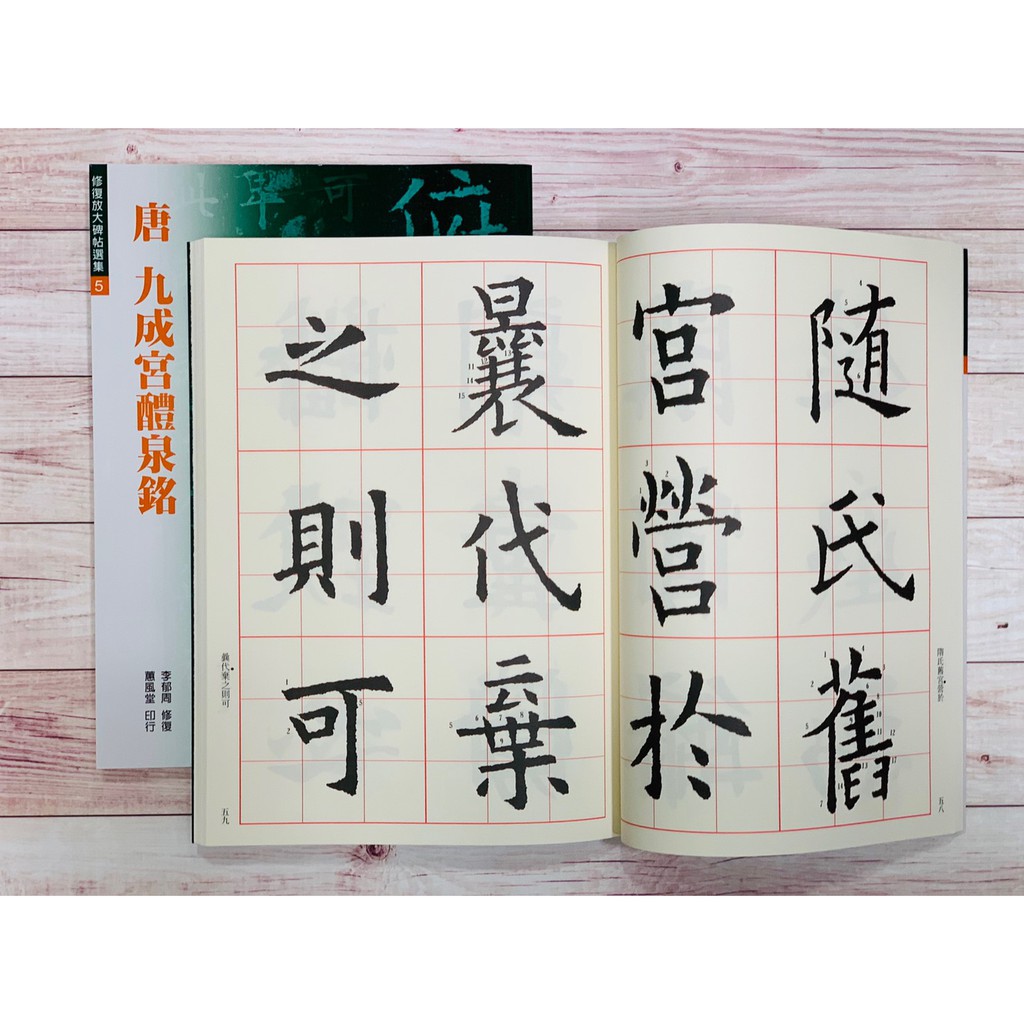 修復放大碑帖選集 5
唐 九成宮醴泉銘
李郁周 修復
蕙風堂 印行
随氏舊
宮營於
隋氏舊宮營於
五八
曩代棄
之則可
曩代棄之則可
五九